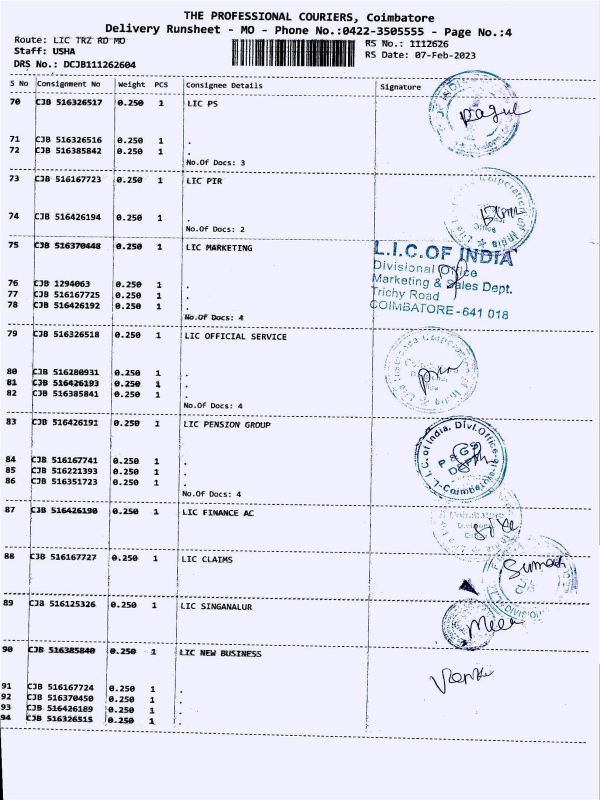 THE PROFESSIONAL COURIERS, Coimbatore
Delivery Runsheet - MO - Phone No.:0422-3505555 - Page No.:4
Route: LIC TRZ RD MO
RS No.: 1112626
Staff: USHA
RS Date: 07-Feb-2023
DRS No.: DCJB111262604
S No Consignment No Weight PCS Consignee Details Signature
70 CJB 516326517 0.250 1 LIC PS
71 CJB 516326516 0.250 1 .
72 CJB 516385842 0.250 1 .
No.Of Docs: 3
73 CJB 516167723 0.250 1 LIC PIR
74 CJB 516426194 0.250 1 .
No.Of Docs: 2
75 CJB 516370448 0.250 1 LIC MARKETING
L.I.C. OF INDIA
Divisional Office
Marketing & Sales Dept.
Trichy Road
COIMBATORE - 641 018
76 CJB 1294063 0.250 1 .
77 CJB 516167725 0.250 1 .
78 CJB 516426192 0.250 1 .
No.Of Docs: 4
79 CJB 516326518 0.250 1 LIC OFFICIAL SERVICE
80 CJB 516280931 0.250 1 .
81 CJB 516426193 0.250 1 .
82 CJB 516385841 0.250 1 .
No.Of Docs: 4
83 CJB 516426191 0.250 1 LIC PENSION GROUP
L.I.C. of India, Divl. Office
P & GS
84 CJB 516167741 0.250 1 .
85 CJB 516221393 0.250 1 .
86 CJB 516351723 0.250 1 .
No.Of Docs: 4
87 CJB 516426190 0.250 1 LIC FINANCE AC
88 CJB 516167727 0.250 1 LIC CLAIMS
89 CJB 516125326 0.250 1 LIC SINGANALUR
90 CJB 516385840 0.250 1 LIC NEW BUSINESS
91 CJB 516167724 0.250 1 .
92 CJB 516370450 0.250 1 .
93 CJB 516426189 0.250 1 .
94 CJB 516326515 0.250 1 .